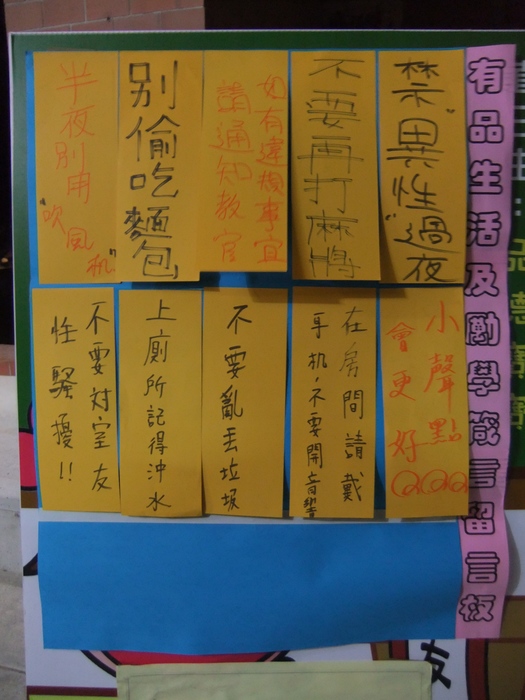 有品生活及勵學箴言留言板
禁"異性"過夜
不要再打麻將
如有違規事宜
請通知教官
別偷吃麵包
半夜別用
"吹風机"
小聲點
會更好
在房間請戴
耳机,不要開音響
不要亂丟垃圾
上廁所記得沖水
不要対室友
性騷擾!!
友